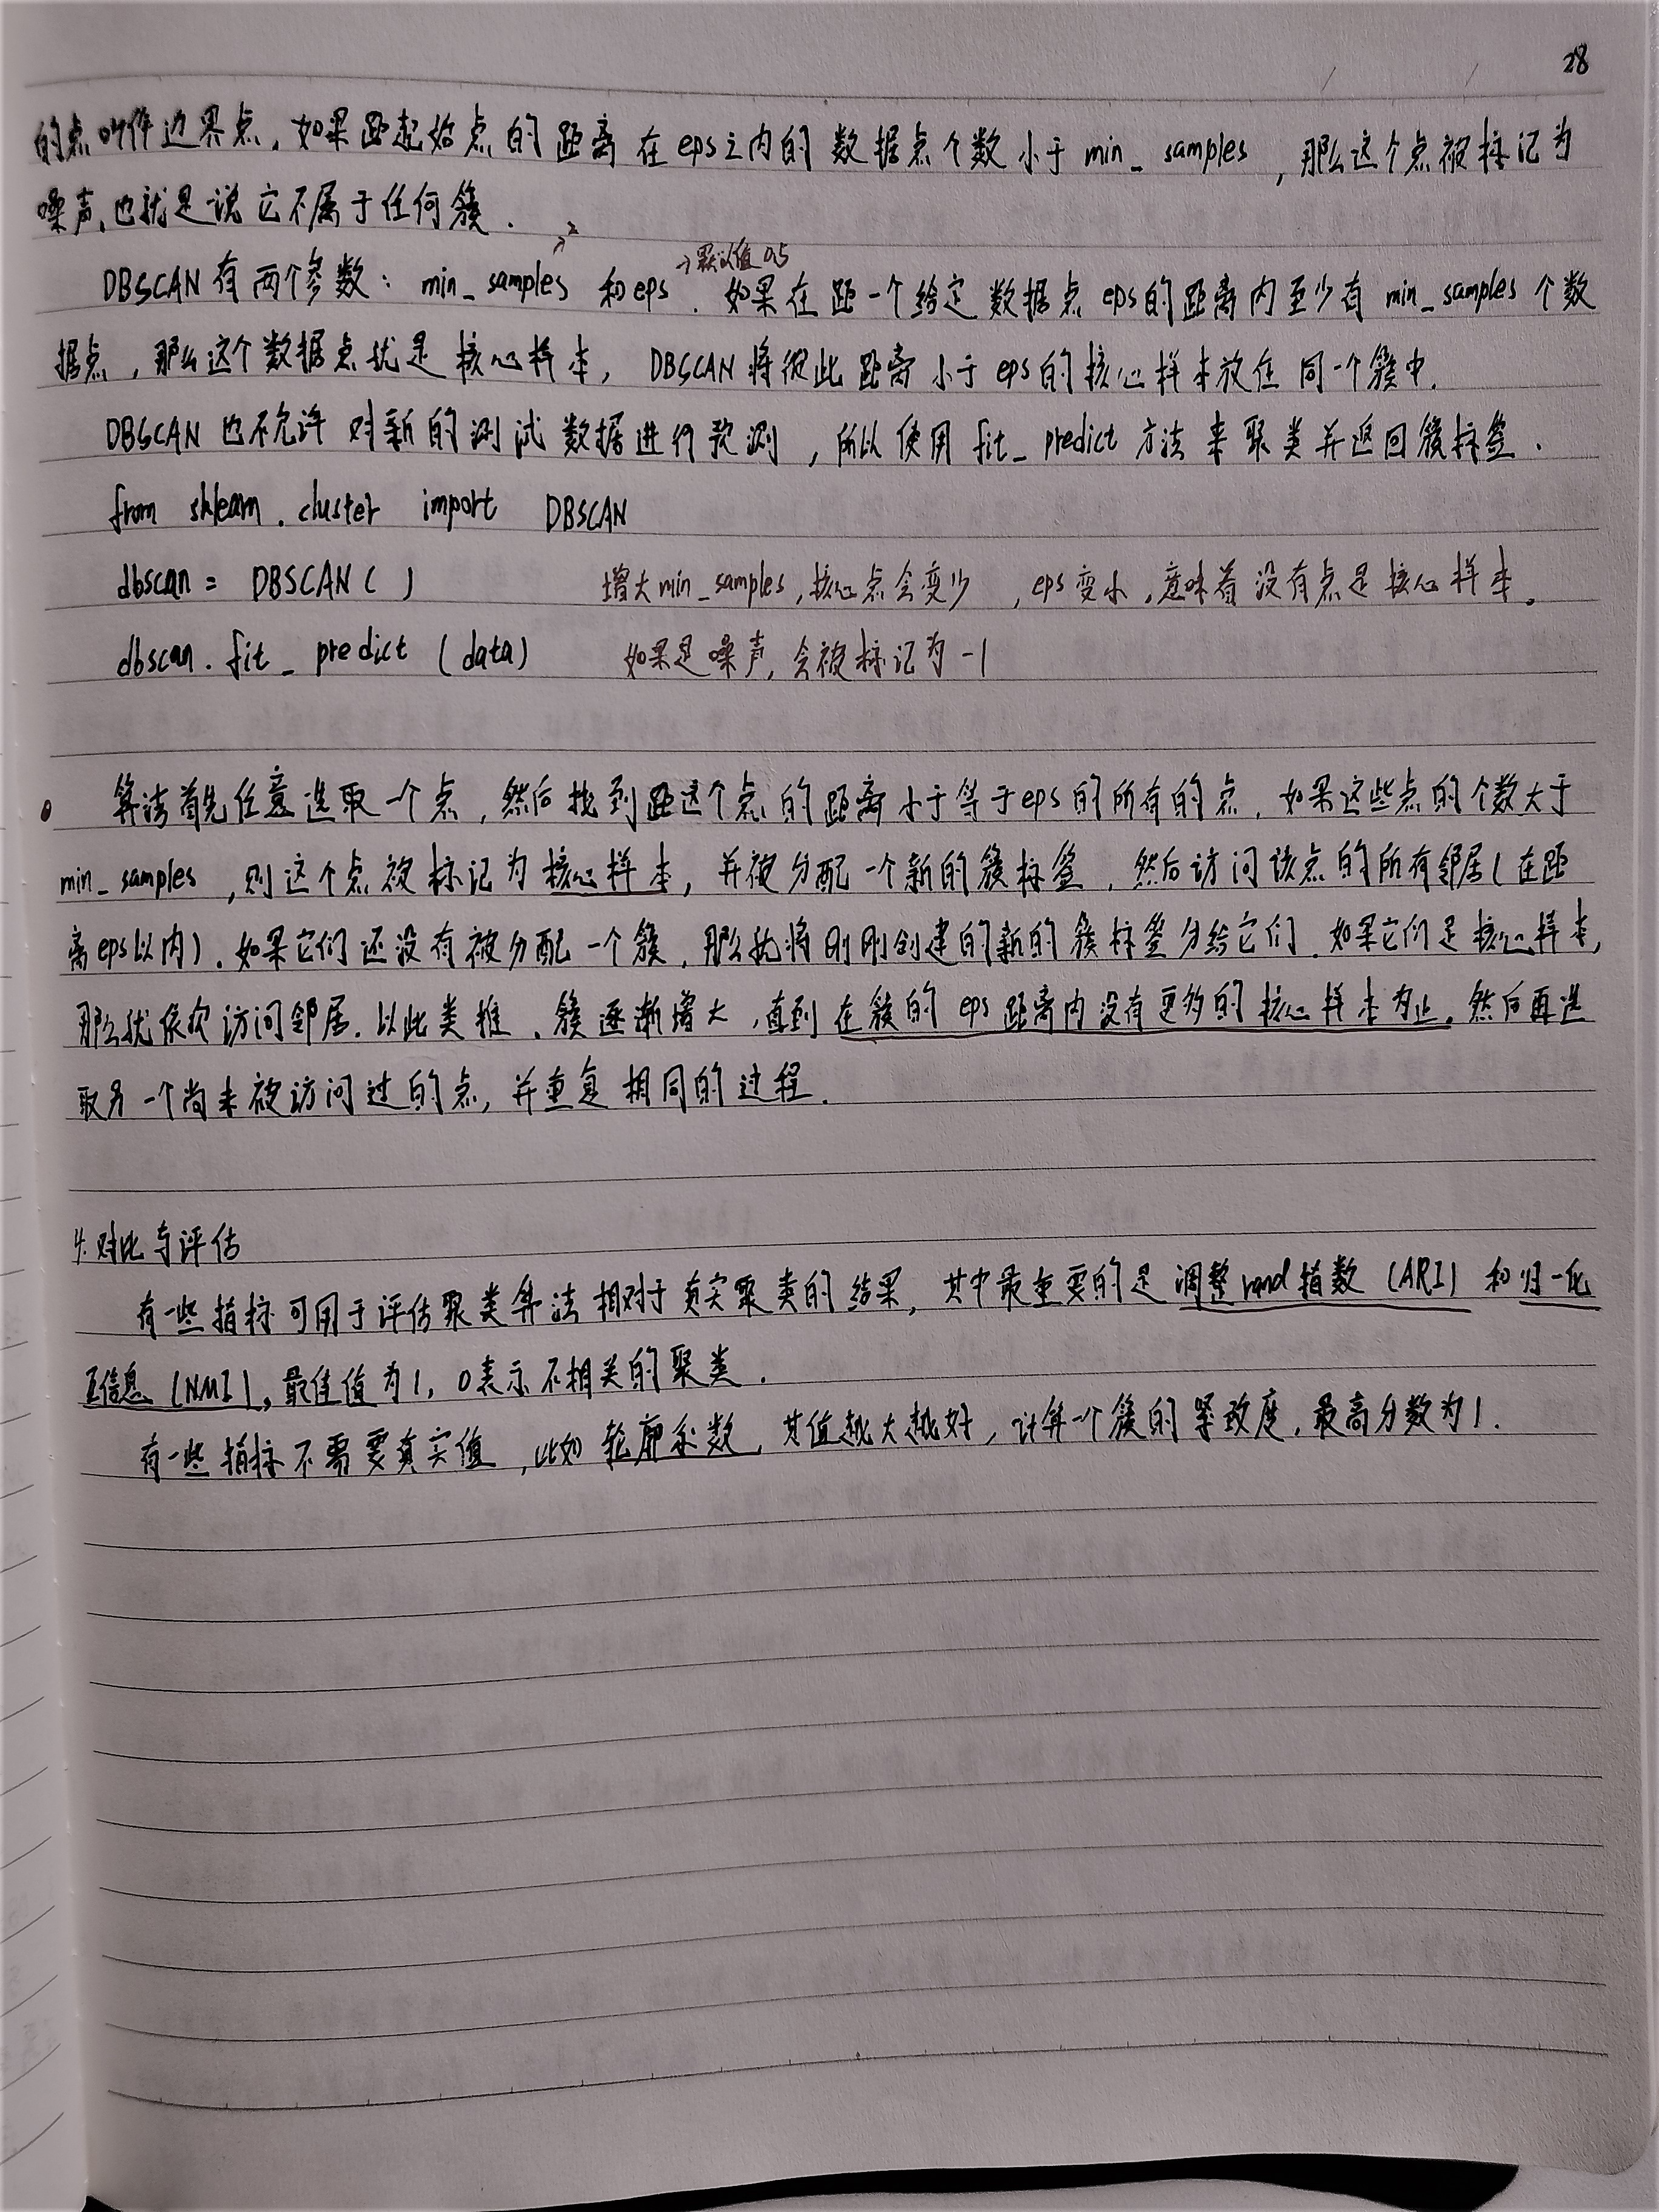 28
的点叫作边界点，如果距起始点的距离在eps之内的数据点个数小于min_samples，那么这个点被标记为
噪声，也就是说它不属于任何簇.
→2
→默认值0.5
DBSCAN有两个参数：min_samples 和eps．如果在距一个给定数据点eps的距离内至少有min_samples个数
据点，那么这个数据点就是核心样本，DBSCAN将彼此距离小于eps的核心样本放在同一个簇中.
DBSCAN也不允许对新的测试数据进行预测，所以使用fit_predict方法来聚类并返回簇标签.
from sklearn.cluster import DBSCAN
dbscan = DBSCAN( ) 增大min_samples,核心点会变少，eps变小,意味着没有点是核心样本。
dbscan.fit_predict (data) 如果是噪声,会被标记为-1
算法首先任意选取一个点，然后找到距这个点的距离小于等于eps的所有的点．如果这些点的个数大于
min_samples，则这个点被标记为核心样本，并被分配一个新的簇标签．然后访问该点的所有邻居(在距
离eps以内)．如果它们还没有被分配一个簇，那么就将刚刚创建的新的簇标签分给它们．如果它们是核心样本,
那么就依次访问邻居．以此类推．簇逐渐增大，直到在簇的eps距离内没有更多的核心样本为止．然后再选
取另一个尚未被访问过的点，并重复相同的过程.
4.对比与评估
有一些指标可用于评估聚类算法相对于真实聚类的结果，其中最重要的是调整rand指数(ARI)和归一化
互信息(NMI)，最佳值为1，0表示不相关的聚类.
有一些指标不需要真实值，比如轮廓系数，其值越大越好，计算一个簇的紧致度，最高分数为1.